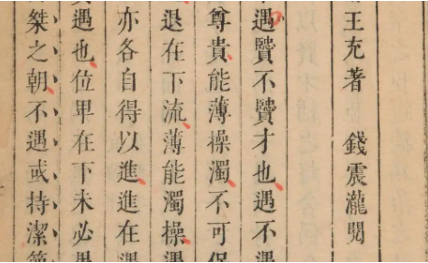 王充著 錢震瀧閱
遇贒不贒才也遇不遇
尊貴能薄操濁不可保
退在下流薄能濁操遇
亦各自得以進進在遇
遇也位卑在下未必
桀之朝不遇或持潔節